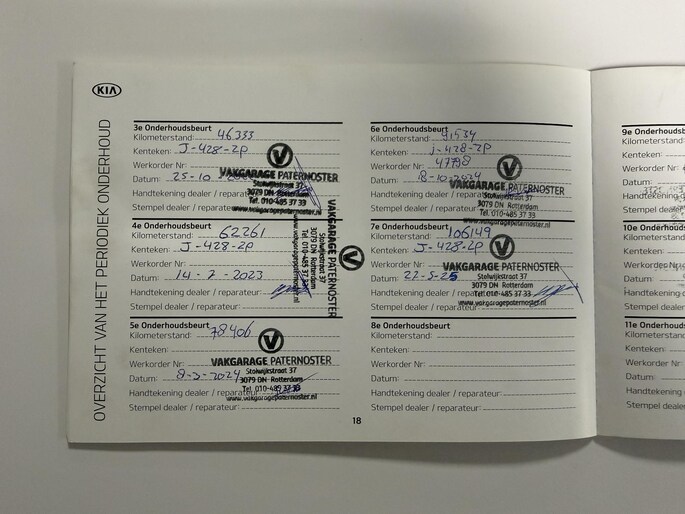 KIA
OVERZICHT VAN HET PERIODIEK ONDERHOUD
3e Onderhoudsbeurt
Kilometerstand: 46333
Kenteken: J-428-ZP
Werkorder Nr:
Datum: 25-10
Handtekening dealer / reparateur
Stempel dealer / reparateur:
VAKGARAGE PATERNOSTER
Stolwijkstraat 37
3079 DN Rotterdam
Tel. 010-485 37 33
www.vakgaragepaternoster.nl
4e Onderhoudsbeurt
Kilometerstand: 62261
Kenteken: J-428-ZP
Werkorder Nr:
Datum: 14-7-2023
Handtekening dealer / reparateur:
Stempel dealer / reparateur:
VAKGARAGE PATERNOSTER
Stolwijkstraat 37
3079 DN Rotterdam
Tel. 010-485 37 33
www.vakgaragepaternoster.nl
5e Onderhoudsbeurt
Kilometerstand: 78406
Kenteken:
Werkorder Nr:
Datum: 8-3-2024
Handtekening dealer / reparateur:
Stempel dealer / reparateur:
VAKGARAGE PATERNOSTER
Stolwijkstraat 37
3079 DN Rotterdam
Tel. 010-485 37 33
www.vakgaragepaternoster.nl
6e Onderhoudsbeurt
Kilometerstand: 91534
Kenteken: J-428-ZP
Werkorder Nr: 47798
Datum: 8-10-2024
Handtekening dealer / reparateur
Stempel dealer / reparateur:
VAKGARAGE PATERNOSTER
Stolwijkstraat 37
3079 DN Rotterdam
Tel. 010-485 37 33
www.vakgaragepaternoster.nl
7e Onderhoudsbeurt
Kilometerstand: 106149
Kenteken: J-428-ZP
Werkorder Nr:
Datum: 22-5-25
Handtekening dealer / reparateur
Stempel dealer / reparateur:
VAKGARAGE PATERNOSTER
Stolwijkstraat 37
3079 DN Rotterdam
Tel. 010-485 37 33
www.vakgaragepaternoster.nl
8e Onderhoudsbeurt
Kilometerstand:
Kenteken:
Werkorder Nr:
Datum:
Handtekening dealer / reparateur:
Stempel dealer / reparateur:
18
9e Onderhoudsbeurt
Kilometerstand
Kenteken:
Werkorder Nr:
Datum:
Handtekening
Stempel dealer
10e Onderhouds
Kilometerstand
Kenteken:
Werkorder Nr:
Datum:
Handtekening
Stempel dealer
11e Onderhouds
Kilometerstand
Kenteken:
Werkorder Nr:
Datum:
Handtekening
Stempel dealer